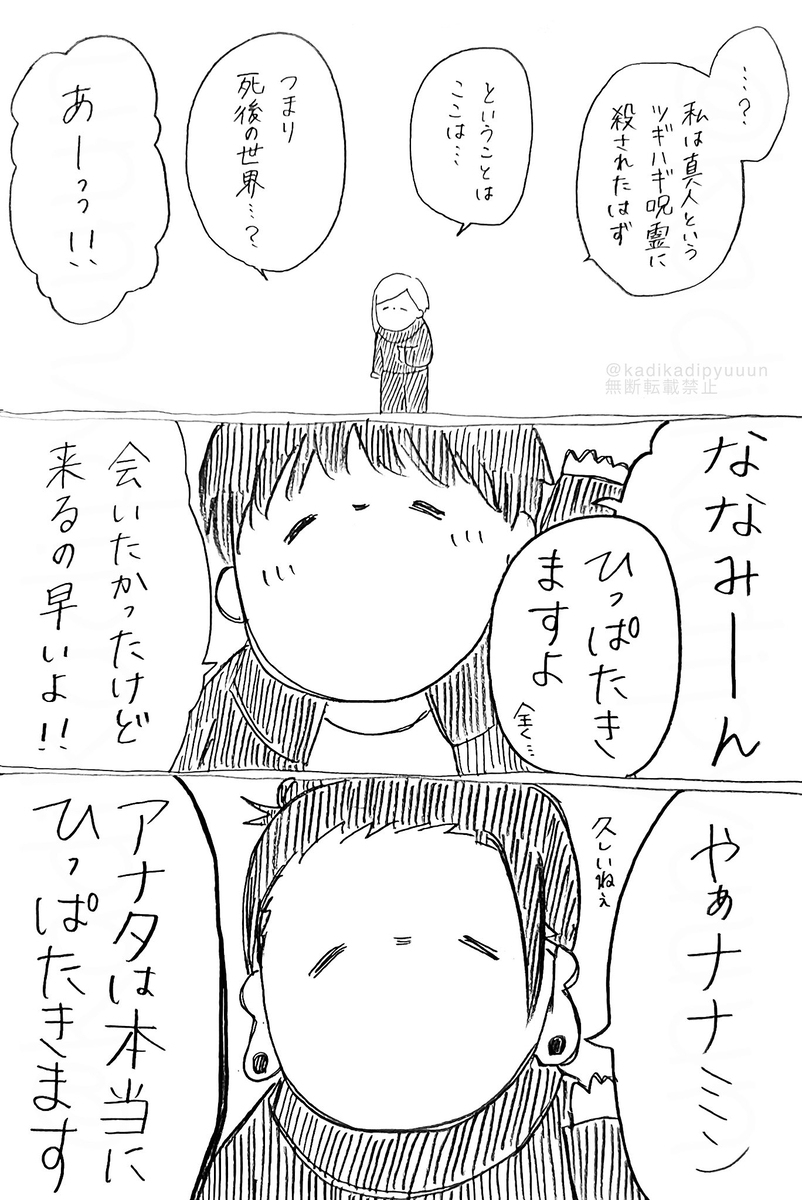 …?
私は真人という
ツギハギ呪霊に
殺されたはず
ということは
ここは…
つまり
死後の世界…?
あーっっ!!
@kadikadipyuuun
無断転載禁止
ななみーん
ひっぱたき
ますよ
全く…
会いたかったけど
来るの早いよ!!
やぁナナミン
久しいねぇ
アナタは本当に
ひっぱたきます